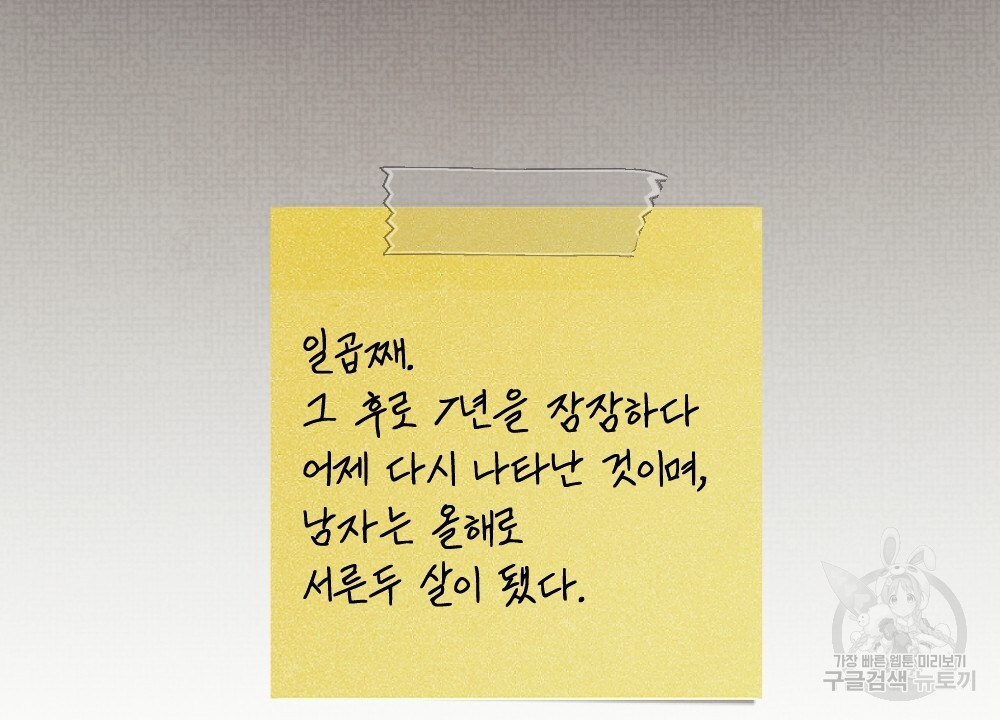 일곱째.
그 후로 7년을 잠잠하다
어제 다시 나타난 것이며,
남자는 올해로
서른두 살이 됐다.
가장 빠른 웹툰 미리보기
구글검색 뉴토끼